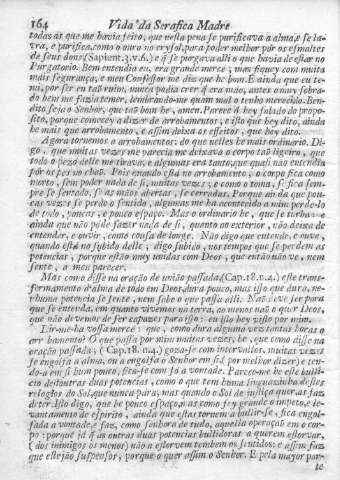 164 Vida da Serafica Madre
todas as que me havia feito, que nesta pena se purificava a alma, e se la-
vra, e purifica, como o ouro no crysol, para poder melhor pôr os esmaltes
de seus dons (Sapient. 3. v. 6.) e q̃ se purgava alli o que havia de estar no
Purgatorio. Bem entendia eu, era grande mercê, mas fiquey com muita
mais segurança, e meu Confessor me diz que he bom. E ainda que eu te-
mi, por ser eu taõ ruim, nunca podia crer q̃ era mao, antes o muy sobra-
do bem me fazia temer, lembrando-me quam mal o tenho merecido. Ben-
dito seja o Senhor, que taõ bom he, amen. Parece q̃ hey sahido do propo-
sito, porque comecey a dizer de arrobamentos, e isto que hey dito, ainda
he mais que arrobamento, e assim deixa os effeitos, que hey dito.
Agora tornemos a arrobamentos; do que nelles he mais ordinario. Di-
go, que muitas vezes me parecia me deixava o corpo taõ ligeiro, que
todo o pezo delle me tirava, e algumas era tanto, que quasi naõ entendia
pôr os pés no chaõ. Pois quando está no arrobamento, o corpo fica como
morto, sem poder nada de si, muitas vezes, e como o toma, se fica sem-
pre se sentado, se as mãos abertas, se cerradas. Porque ainda que pou-
cas vezes se perde o sentido, algumas me ha acontecido a mim perdelo
de todo, poucas, e pouco espaço. Mas o ordinario he, que se turba: e
ainda que naõ póde fazer nada de si, quanto ao exterior, naõ deixa de
entender, e ouvir, como cousa de longe. Naõ digo que entende, e ouve,
quando está no subido delle, digo subido, nos tempos que se perdem as
potencias, porque estaõ muy unidas com Deos, que entaõ naõ ve, nem
sente, a meu parecer.
Mas como disse na oração de uniaõ passada, (Cap. 18. n. 4.) este trans-
formamento d'alma de todo em Deos, dura pouco, mas isso que dura, ne-
nhuma potencia se sente, nem sabe o que passa alli. Naõ deve ser para
que se entenda, em quanto vivemos na terra, ao menos naõ o quer Deos,
que naõ devemos de ser capazes para isso: eu isto hey visto por mim.
Dir-me-ha vossa mercê: que, como dura alguma vez tantas horas o
arrobamento? O que passa por mim muitas vezes, he, que como disse na
oração passada, (Cap. 18. n. 4.) goza-se com intervallos, muitas vezes
se engolfa a alma, ou a engolfa o Senhor em si, por melhor dizer; e ten-
do-a em si hum pouco, fica-se com só a vontade. Parece-me he este bulli-
cio destoutras duas potencias, como o que tem huma linguazinha destes
relogios do Sol, que nunca pára, mas quando o Sol de justiça quer, as faz
deter. Isto digo, que he pouco espaço, mas como foy grande o impeto, e le-
vantamento de espirito, ainda que estas tornem a bullir-se, fica engol-
fada a vontade, e faz, como senhora de tudo, aquella operaçaõ em o cor-
po: porque já q̃ as outras duas potencias bullidoras a querem estorvar,
(dos inimigos os menos) naõ a estorvem tambem os sentidos: e assim faz
que estejaõ suspensos, porque o quer assim o Senhor. E pela mayor par-
te